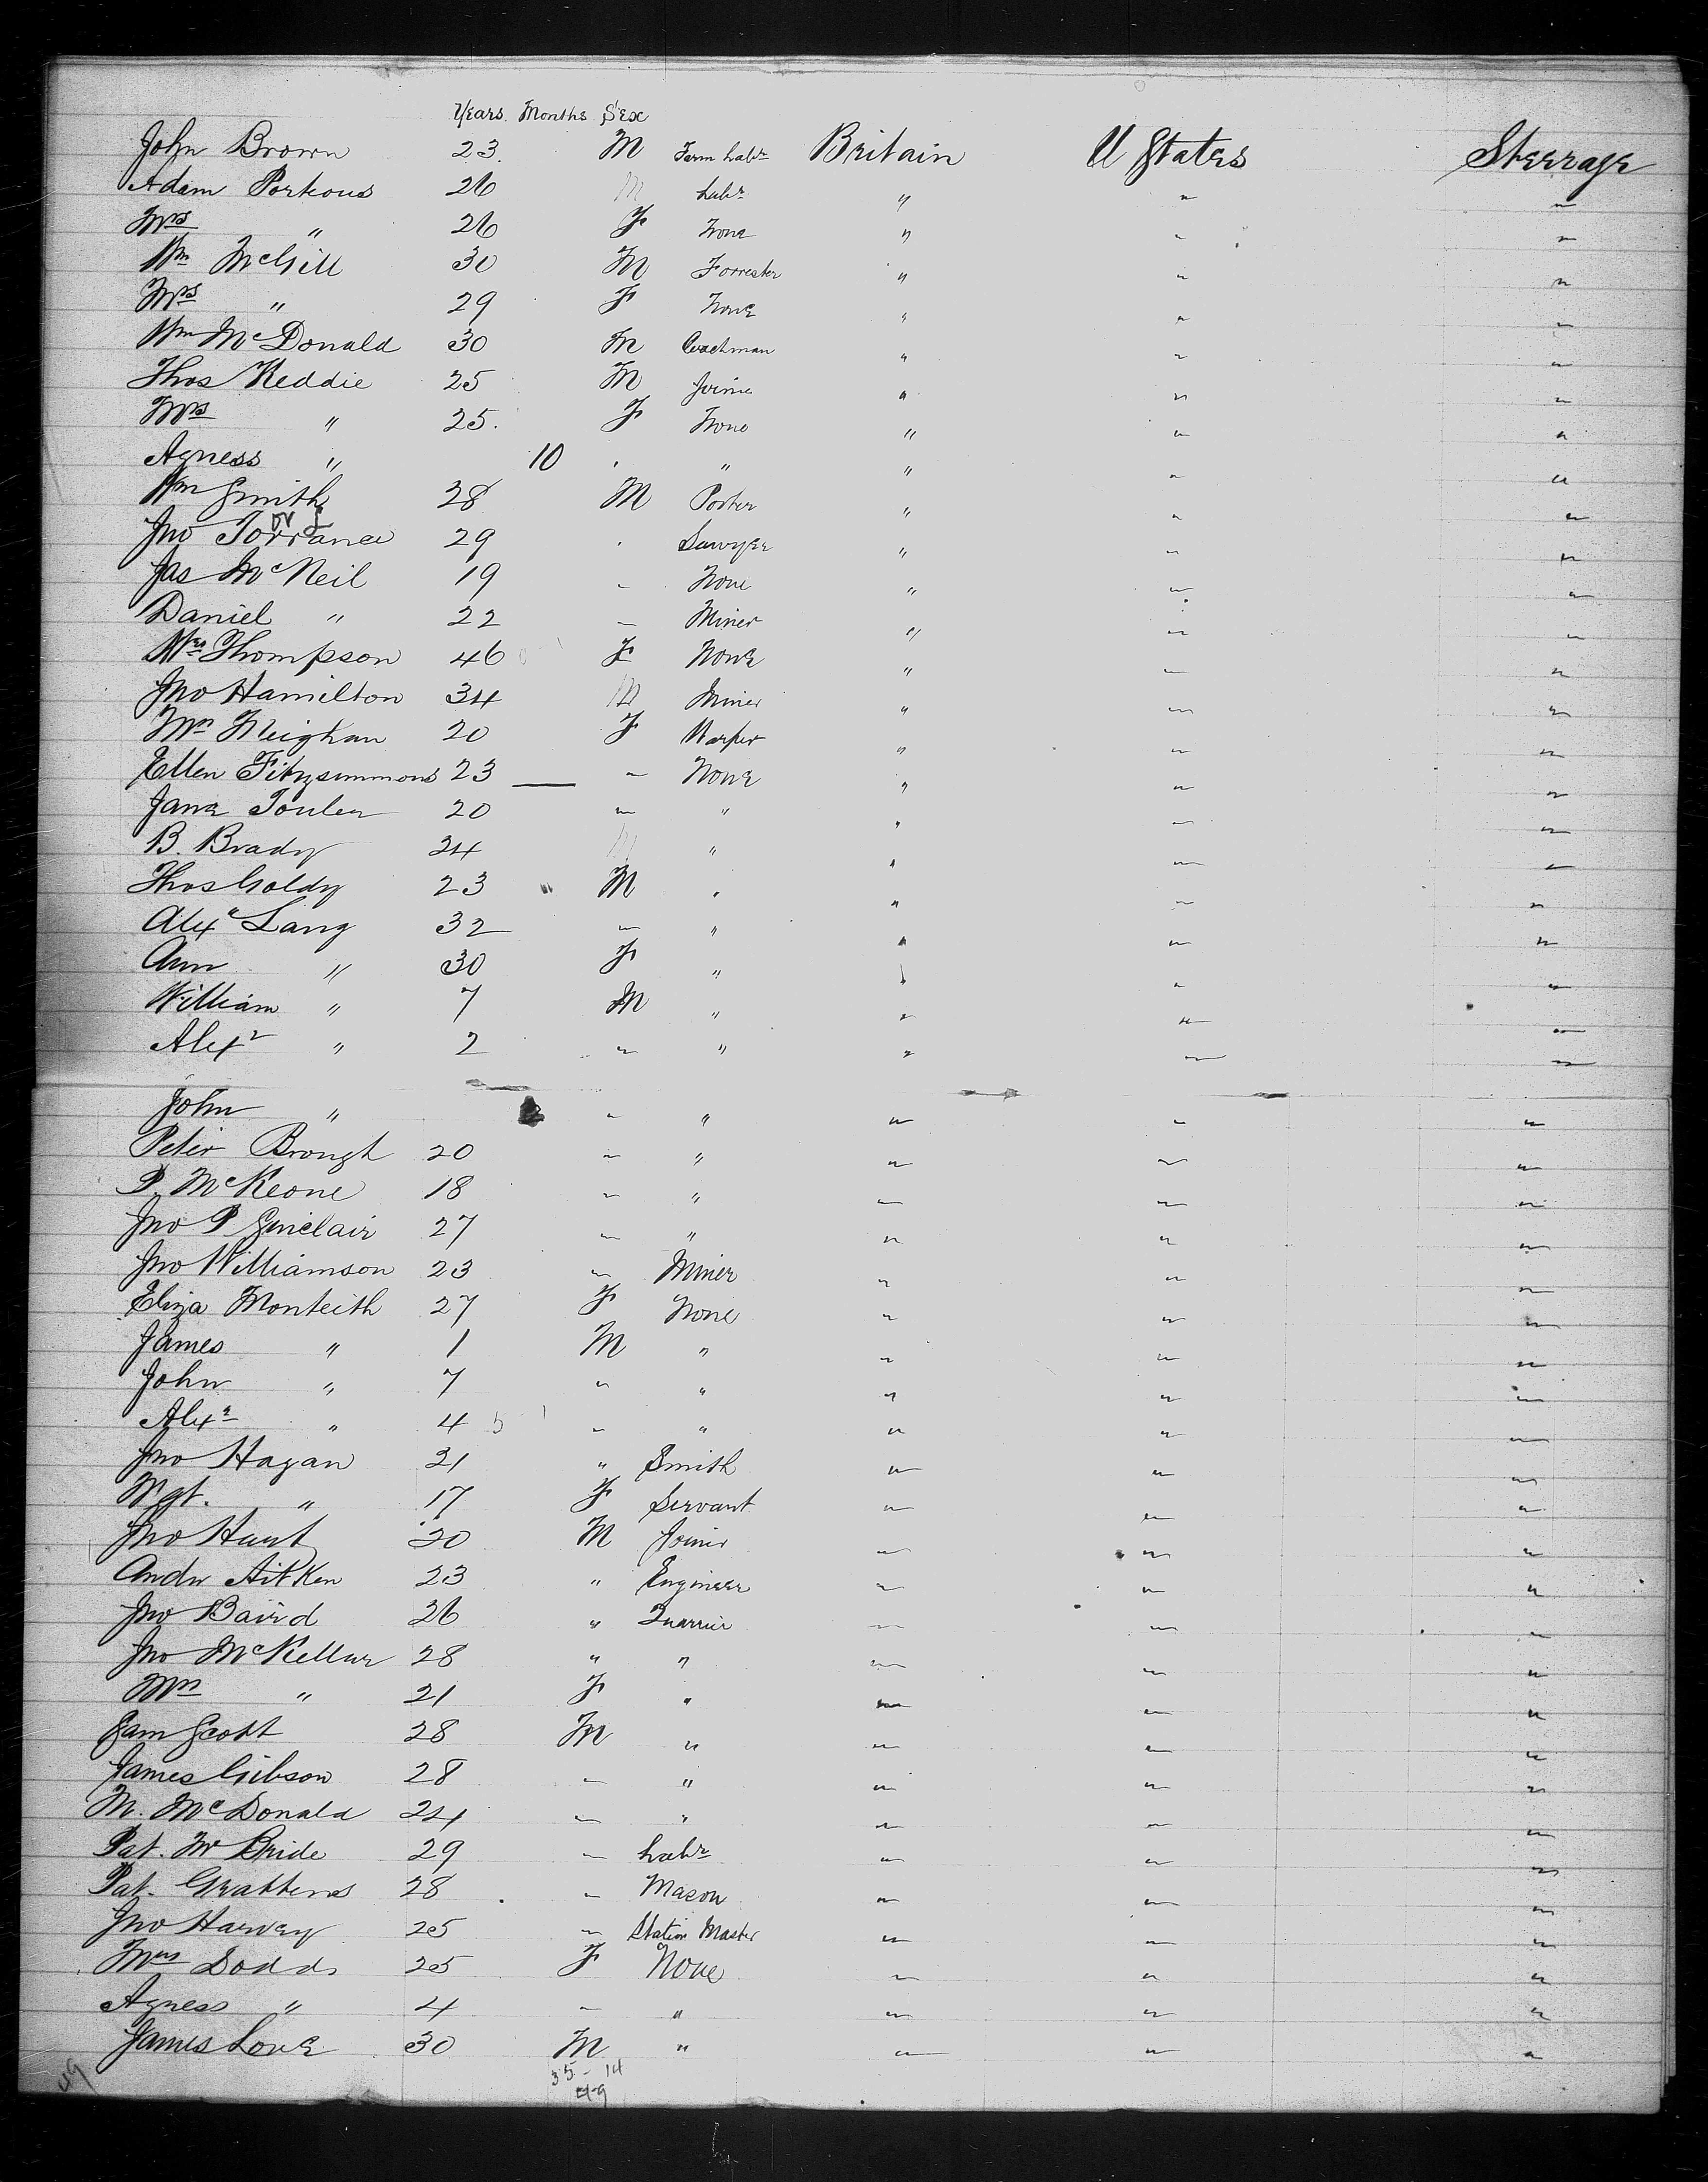 Years. Months Sex
John Brown 23. M Farm Labr Britain U States Steerage
Adam Porteous 26 M Labr " " "
Mrs " 26 F None " " "
Wm McGill 30 M Forrester " " "
Mrs " 29 F None " " "
Wm McDonald 30 M Coachman " " "
Thos Keddie 25 M Joiner " " "
Mrs " 25. F None " " "
Agness " 10 " " " "
Wm Smith 28 M Porter " " "
Jno Torrance 29 Sawyer " " "
Jas McNeil 19 " None " " "
Daniel " 22 " Miner " " "
Mrs Thompson 46 F None " " "
Jno Hamilton 34 M Miner " " "
Mrs Meighan 20 F Harper " " "
Ellen Fitzsimmons 23 — " None " " "
Jane 20 " " " " "
B. Brady 24 M " " " "
Thos Goldy 23 " M " " " "
Alexr Lang 32 " " " " "
Ann " 30 F " " " "
William " 7 M " " " "
Alexr " 2 " " " " "
John " " " " " "
Peter Brough 20 " " " " "
P. McKeone 18 " " " " "
Jno P Sinclair 27 " " " " "
Jno Williamson 23 " Miner " " "
Eliza Monteith 27 F None " " "
James " 1 M " " " "
John " 7 " " " " "
Alexr " 4 5 " " " " "
Jno Hagan 21 " Smith " " "
Mgt. " 17 F Servant " " "
Jno Hunt 20 M Joiner " " "
Andw Aitken 23 " Engineer " " "
Jno Baird 26 " Quarrier " " "
Jno McKellar 28 " " " " "
Mrs " 21 F " " " "
Sam Scott 28 M " " " "
James Gibson 28 " " " " "
M. McDonald 24 " " " " "
Pat. McBride 29 " Labr " " "
Pat. Grattens 28 " Mason " " "
Jno Harvey 25 " Station Master " " "
Mrs Dodds 25 F None " " "
Agness " 4 " " " " "
James Love 30 M " " " "
49 35 - 14
49